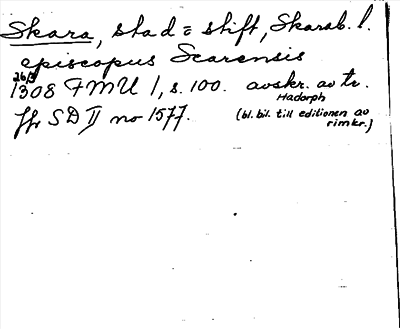 Skara, stad o stift, Skarab. l.
episcopus Scarensis
26/3
1308 FMU 1, s. 100. avskr. av tr.
Hadorph
jfr SD II no 1577. (bl. bil. till editionen av
rimkr.)